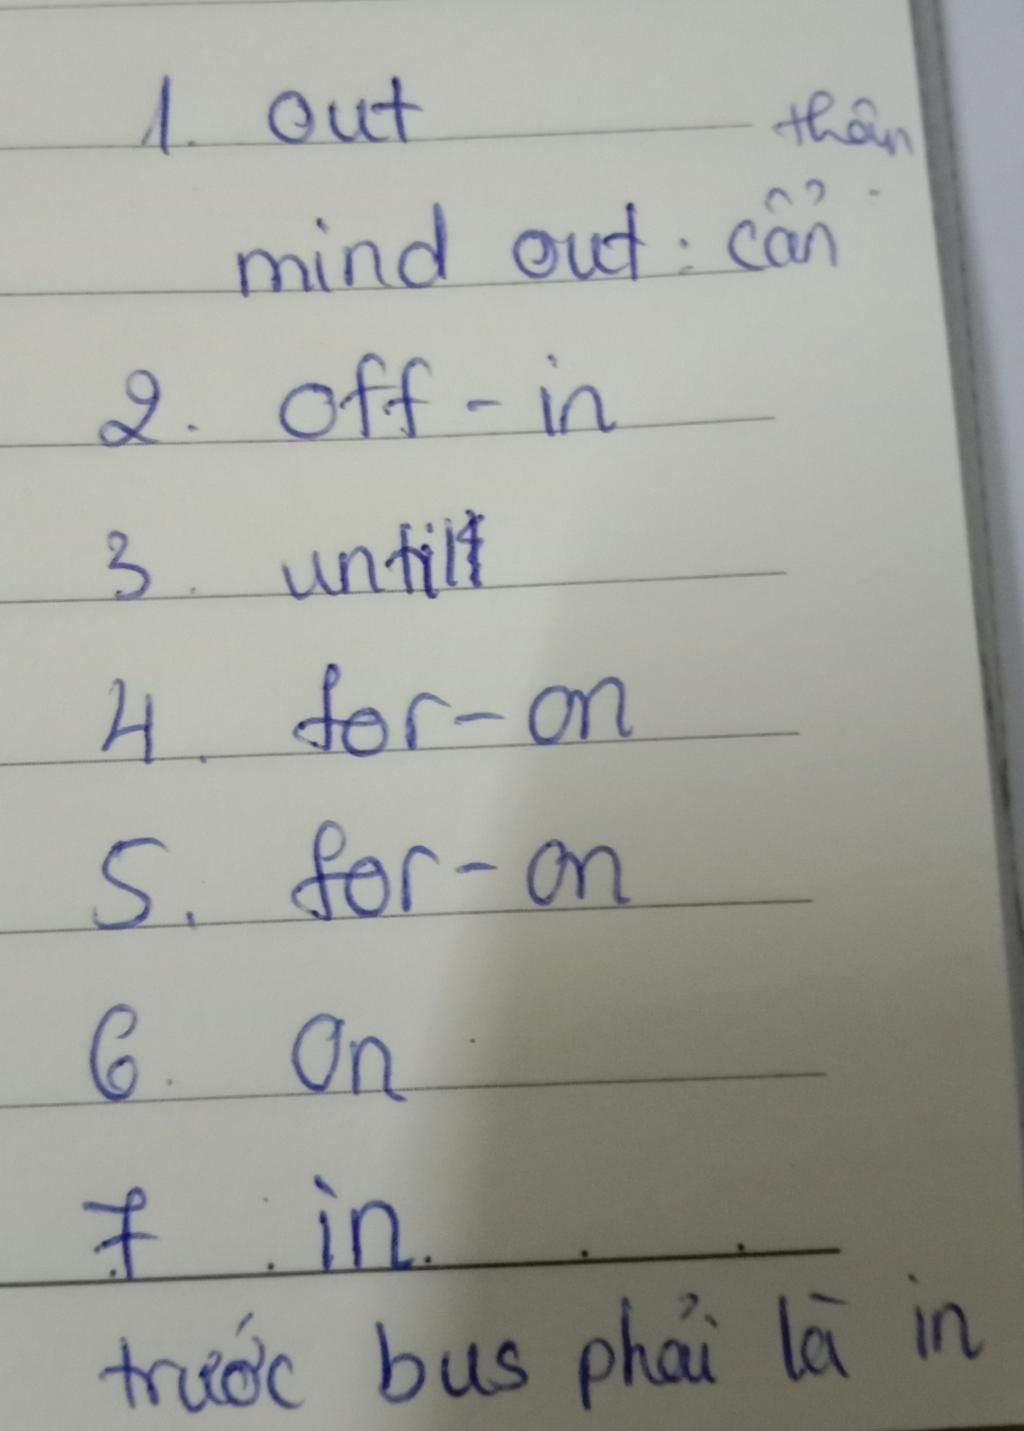 1. out
thận
mind out : cẩn
2. off - in
3. until
4. for - on
5. for - on
6. On
7. in.
trước bus phải là in